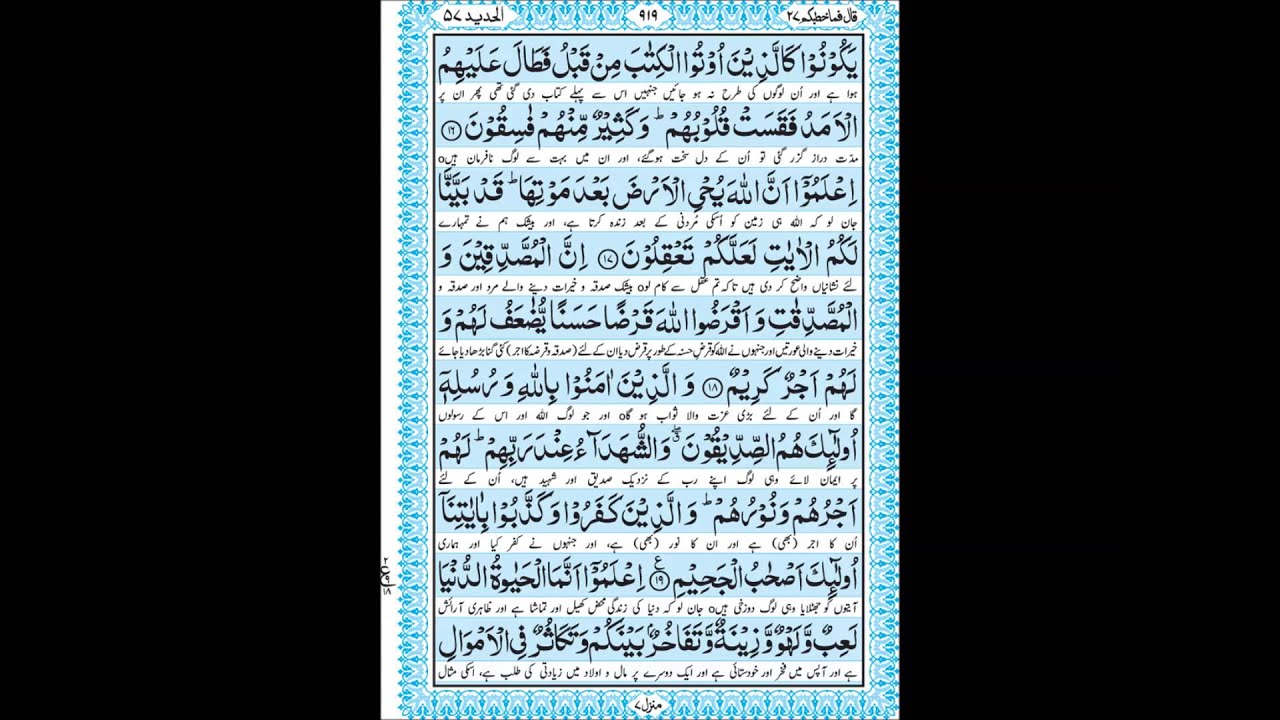 قال فما خطبكم ٢٧ ٩١٩ الحديد ٥٧
يَكُوۡنُوۡا كَالَّذِيۡنَ اُوۡتُوا الۡكِتٰبَ مِنۡ قَبۡلُ فَطَالَ عَلَيۡهِمُ
ہوا ہے اور اُن لوگوں کی طرح نہ ہو جائیں جنہیں اس سے پہلے کتاب دی گئی تھی پھر ان پر
الۡاَمَدُ فَقَسَتۡ قُلُوۡبُهُمۡ ؕ وَكَثِيۡرٌ مِّنۡهُمۡ فٰسِقُوۡنَ ۝۱۶
مدّت دراز گزر گئی تو اُن کے دل سخت ہوگئے، اور ان میں بہت سے لوگ نافرمان ہیںo
اِعۡلَمُوۡۤا اَنَّ اللّٰهَ يُحۡىِ الۡاَرۡضَ بَعۡدَ مَوۡتِهَا ؕ قَدۡ بَيَّنَّا
جان لو کہ اللہ ہی زمین کو اُسکی مُردنی کے بعد زندہ کرتا ہے، اور بیشک ہم نے تمہارے
لَـكُمُ الۡاٰيٰتِ لَعَلَّكُمۡ تَعۡقِلُوۡنَ ۝۱۷ اِنَّ الۡمُصَّدِّقِيۡنَ وَ
لئے نشانیاں واضح کر دی ہیں تاکہ تم عقل سے کام لوo بیشک صدقہ و خیرات دینے والے مرد اور صدقہ و
الۡمُصَّدِّقٰتِ وَ اَقۡرَضُوا اللّٰهَ قَرۡضًا حَسَنًا يُّضٰعَفُ لَهُمۡ وَ
خیرات دینے والی عورتیں اور جنہوں نے اللہ کو قرضِ حسنہ کے طور پر قرض دیا ان کے لئے (صدقہ و قرضہ کا اجر) کئی گنا بڑھا دیا جائے
لَهُمۡ اَجۡرٌ كَرِيۡمٌ ۝۱۸ وَ الَّذِيۡنَ اٰمَنُوۡا بِاللّٰهِ وَ رُسُلِهٖۤ
گا اور اُن کے لئے بڑی عزت والا ثواب ہو گاo اور جو لوگ اللہ اور اس کے رسولوں
اُولٰٓئِكَ هُمُ الصِّدِّيۡقُوۡنَ ۖ وَالشُّهَدَآءُ عِنۡدَ رَبِّهِمۡ ؕ لَهُمۡ
پر ایمان لائے وہی لوگ اپنے رب کے نزدیک صدیق اور شہید ہیں، اُن کے لئے
اَجۡرُهُمۡ وَ نُوۡرُهُمۡ ؕ وَ الَّذِيۡنَ كَفَرُوۡا وَ كَذَّبُوۡا بِاٰيٰتِنَاۤ
اُن کا اجر (بھی) ہے اور ان کا نور (بھی) ہے، اور جنہوں نے کفر کیا اور ہماری
اُولٰٓئِكَ اَصۡحٰبُ الۡجَحِيۡمِ ۝۱۹ ع اِعۡلَمُوۡۤا اَنَّمَا الۡحَيٰوةُ الدُّنۡيَا
آیتوں کو جھٹلایا وہی لوگ دوزخی ہیںo جان لو کہ دنیا کی زندگی محض کھیل اور تماشا ہے اور ظاہری آرائش
لَعِبٌ وَّ لَهۡوٌ وَّ زِيۡنَةٌ وَّ تَفَاخُرٌۢ بَيۡنَكُمۡ وَ تَكَاثُرٌ فِى الۡاَمۡوَالِ
ہے اور آپس میں فخر اور خودستائی ہے اور ایک دوسرے پر مال و اولاد میں زیادتی کی طلب ہے، اسکی مثال
منزل ٧